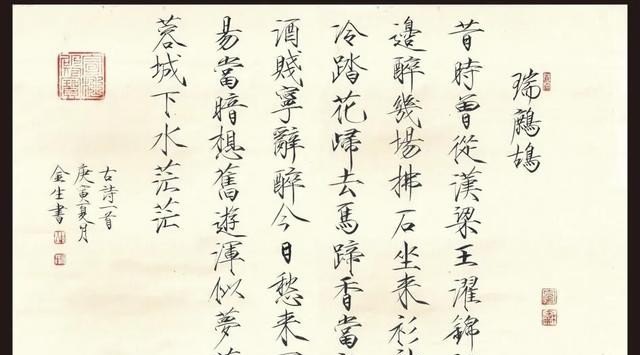 瑞鷓鴣
昔時曾從漢梁王濯錦
邊醉幾場拂石坐來衫
冷踏花歸去馬蹄香當
酒賤寧辭醉今日愁來
易當暗想舊遊渾似夢
蓉城下水茫茫
古詩一首
庚寅夏月
金生書